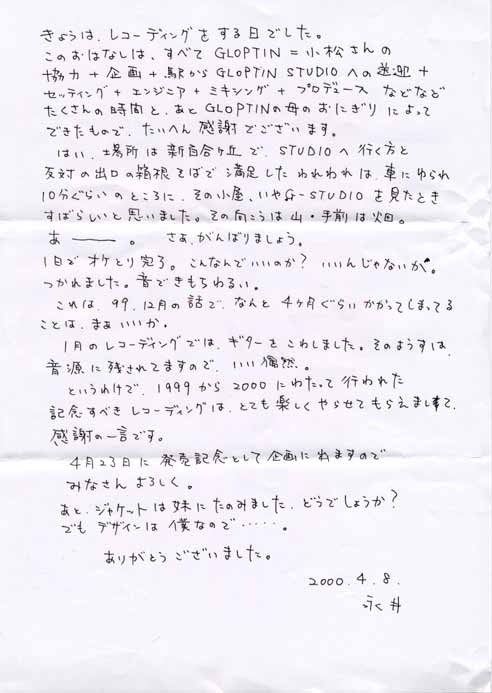 きょうは、レコーディングをする日でした。
このおはなしは、すべてGLOPTIN=小松さんの
協力+企画+駅からGLOPTIN STUDIOへの送迎+
セッティング+エンジニア+ミキシング+プロデュース などなど
たくさんの時間と、あとGLOPTINの母のおにぎりによって
できたもので、たいへん感謝でございます。
はい、場所は新百合ヶ丘で、STUDIOへ行く方と
反対の出口の箱根そばで満足したわれわれは、車にゆられ
10分ぐらいのところに、その小屋、いやG-STUDIOを見たとき
すばらしいと思いました。その向こうは山・手前は畑。
あ―――。 さぁ、がんばりましょう。
1日でオケとり完了。こんなんでいいのか? いいんじゃないか。
つかれました。音できもちわるい。
これは、99.12月の話で、なんと4ヶ月ぐらいかかってしまってる
ことは、まぁいいか。
1月のレコーディングでは、ギターをこわしました。そのようすは、
音源に残されてますので、いい偶然。
というわけで、1999から2000にわたって行われた
記念すべきレコーディングは、とても楽しくやらせてもらえまして、
感謝の一言です。
4月23日に発売記念として企画にでますので
みなさんよろしく。
あと、ジャケットは妹にたのみました。どうでしょうか?
でもデザインは僕なので・・・・・。
ありがとうございました。
2000.4.8.
永井